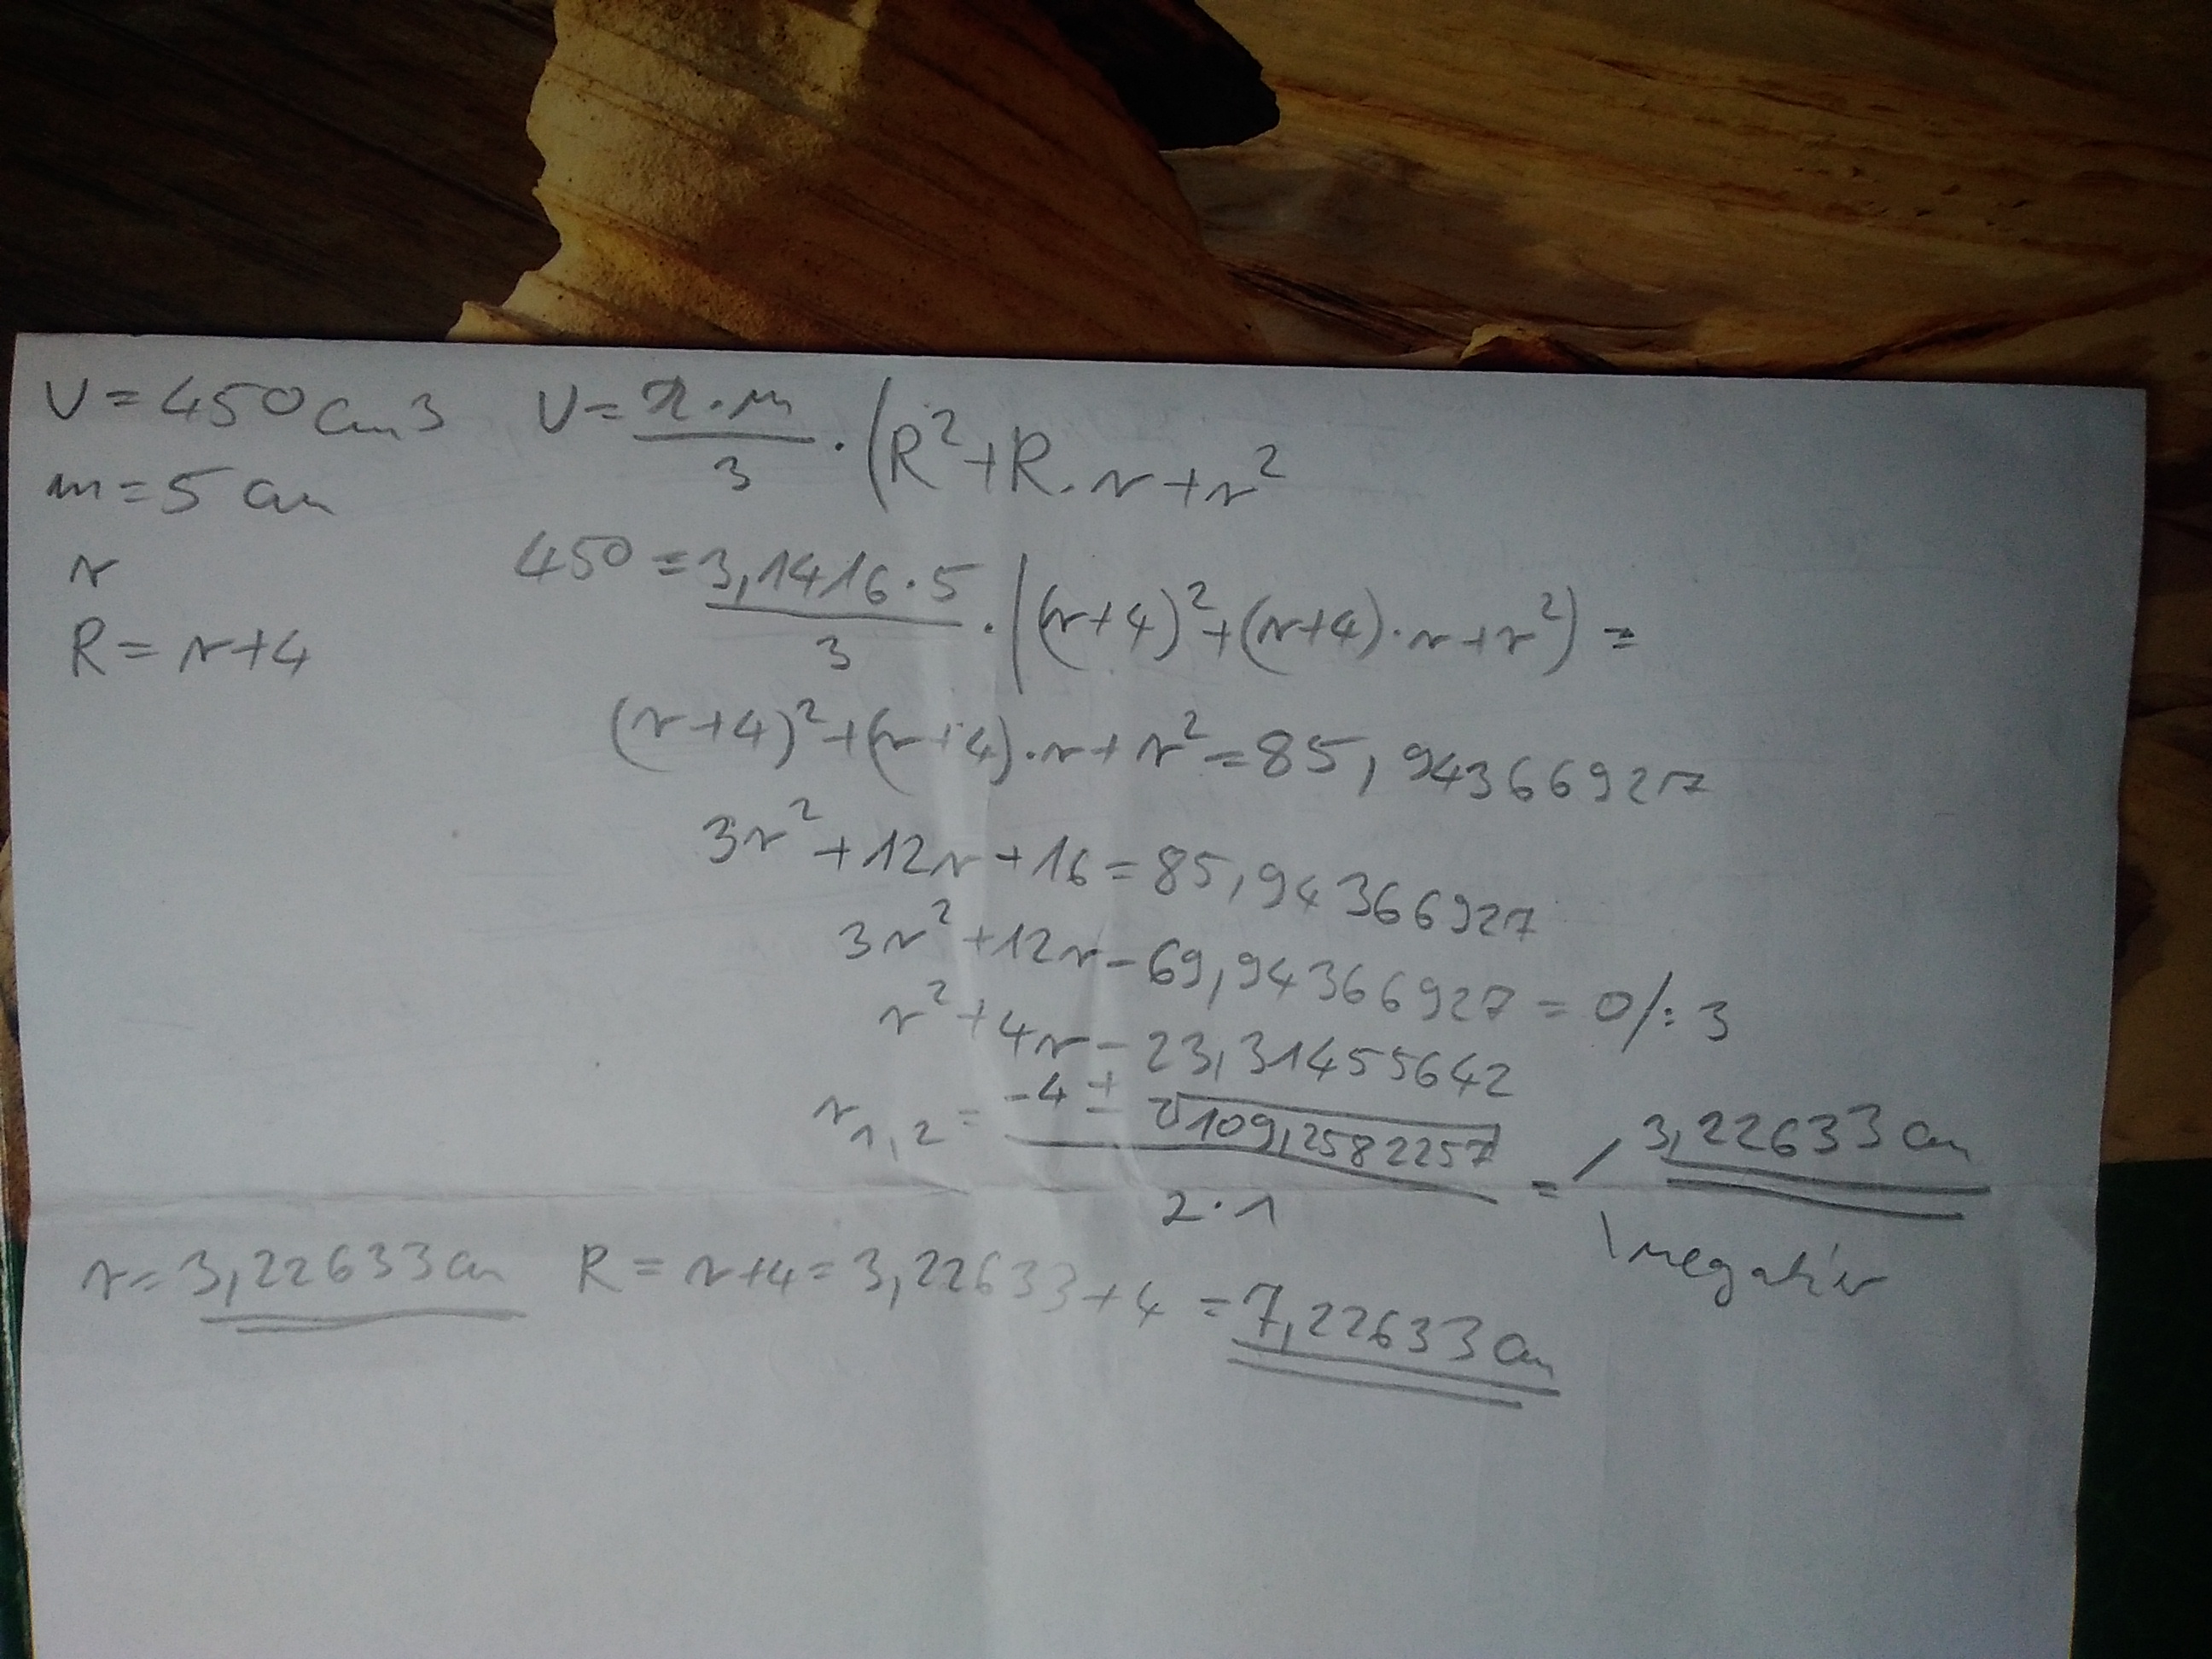 V=450 cm3 V=π·m/3·(R²+R·r+r²
m=5 cm
r
R=r+4
450=3,1416·5/3·((r+4)²+(r+4)·r+r²)=
(r+4)²+(r+4)·r+r²=85,94366927
3r²+12r+16=85,94366927
3r²+12r-69,94366927=0/:3
r²+4r-23,31455642
r1,2=-4±√109,2582257/2·1= / 3,22633 cm
\ negatív
r=3,22633 cm R=r+4=3,22633+4=7,22633 cm